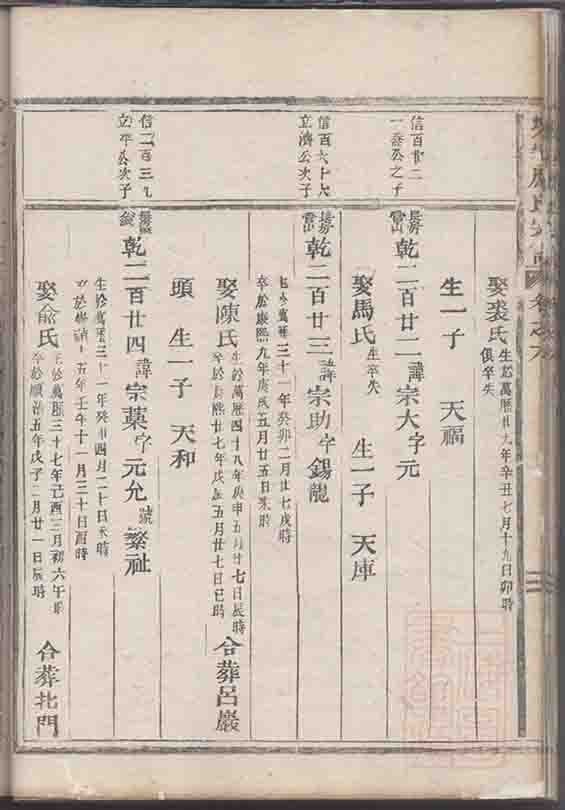 娶裘氏 生於萬曆廿九年辛丑七月十九日卯時
俱卒失
生一子 天福
信百廿二
一 公之子
長房
雪山 乾二百廿二 諱 宗大 字 元
娶馬氏 生卒失 生一子 天庫
信百六十六
立濟公次子
長房
雪山 乾二百廿三 諱 宗助 字 錫龍
生於萬曆三十一年癸卯二月廿七戌時
卒於康熙九年庚戌五月廿五日未時
娶陳氏 生於萬曆四十八年庚申五月廿七日辰時
卒於康熙廿七年戊辰五月廿七日巳時 合葬呂巖
頭 生一子 天和
信二百三九
立平公次子
乾二百廿四 諱 宗葉 字 元允 號 繁祉
生於萬曆三十一年癸卯四月二十日未時
卒於崇禎十五年壬午十一月三十日酉時
娶俞氏 生於萬曆三十七年己酉三月初六午時
卒於順治五年戊子二月廿一日辰時 合葬北門